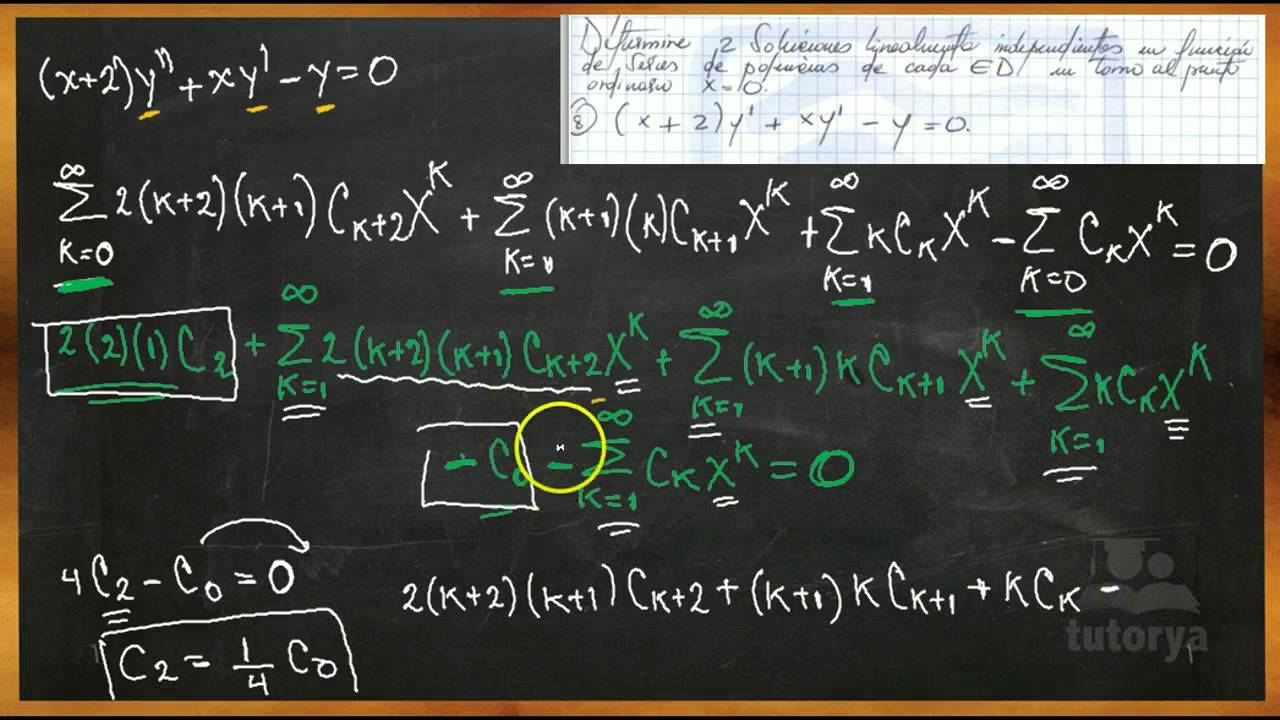 Determine 2 Soluciones linealmente independientes en función
de series de potencias de cada ED en torno al punto
ordinario x=0.
8) (x+2)y' + xy' - y = 0.
(x+2)y'' + xy' - y = 0
∑_{K=0}^{∞} 2(K+2)(K+1)C_{K+2}X^K + ∑_{K=1}^{∞} (K+1)(K)C_{K+1}X^K + ∑_{K=1}^{∞} KC_KX^K - ∑_{K=0}^{∞} C_KX^K = 0
2(2)(1)C_2 + ∑_{K=1}^{∞} 2(K+2)(K+1)C_{K+2}X^K + ∑_{K=1}^{∞} (K+1)KC_{K+1}X^K + ∑_{K=1}^{∞} KC_KX^K
- C_0 - ∑_{K=1}^{∞} C_KX^K = 0
4C_2 - C_0 = 0
2(K+2)(K+1)C_{K+2} + (K+1)KC_{K+1} + KC_K -
C_2 = 1/4 C_0
tutorya